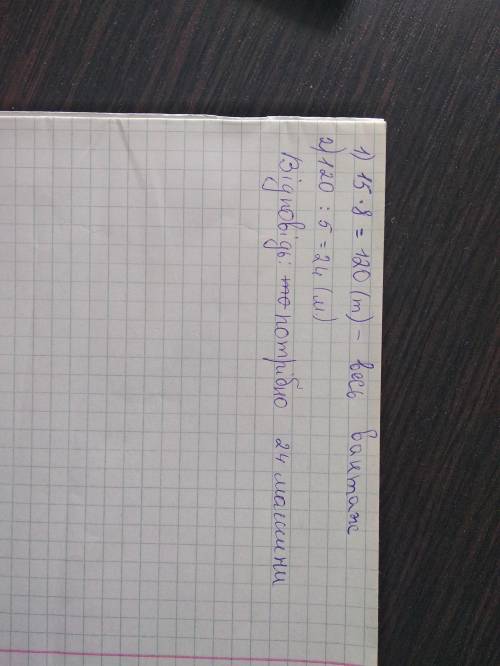 1) 15 · 8 = 120 (т) - весь вантаж
2) 120 : 5 = 24 (м)
Відповідь: то потрібно 24 машини